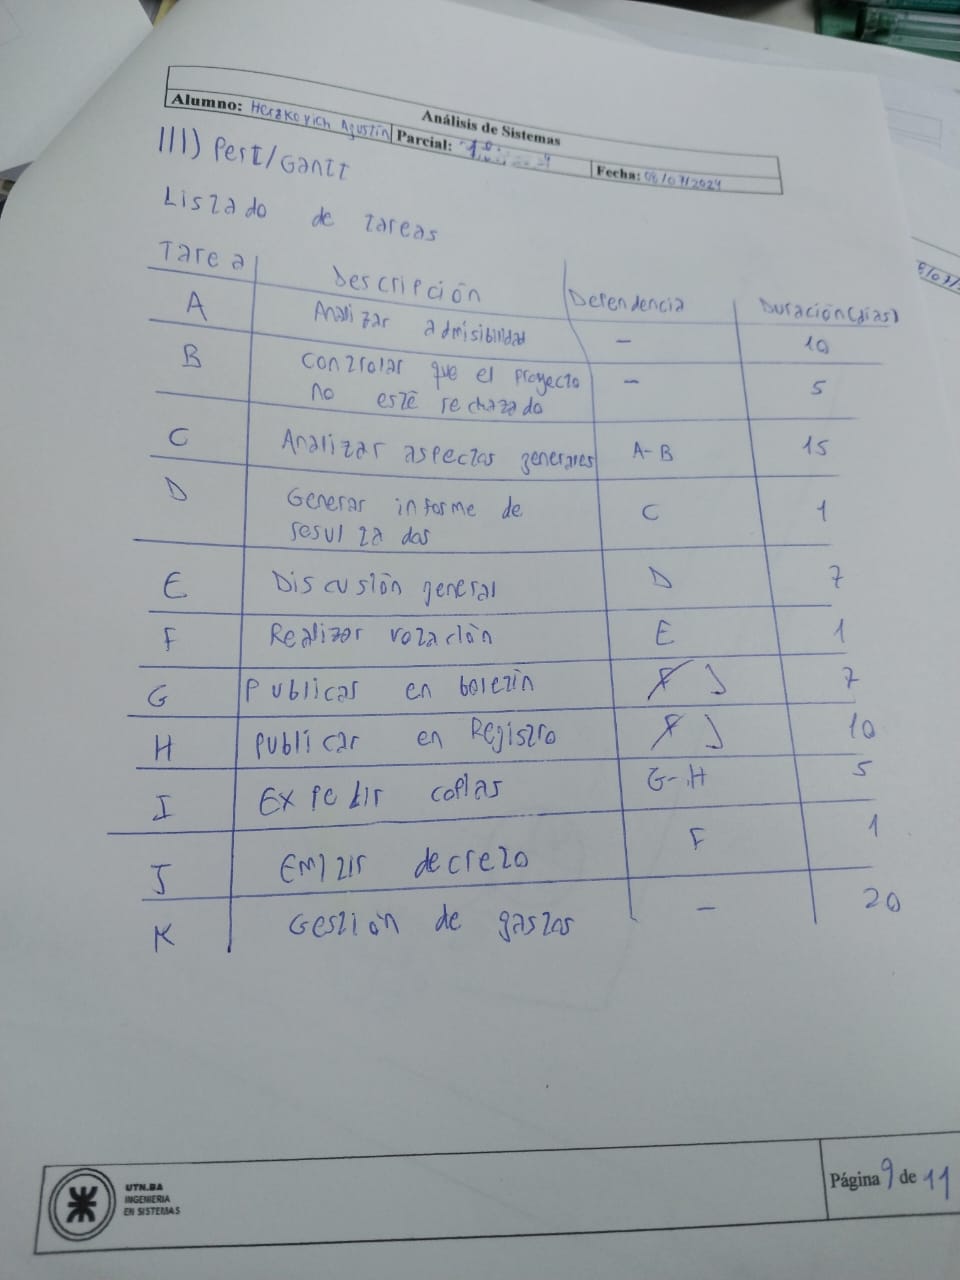 Análisis de Sistemas
Alumno: Herakovich Agustín Parcial: 1º Fecha: 08/07/2024
III) Pert/Gantt
Listado de tareas
Tarea Descripción Dependencia Duración(días)
A Analizar admisibilidad - 10
B Controlar que el proyecto no esté rechazado - 5
C Analizar aspectos generales A-B 15
D Generar informe de resultados C 1
E Discusión general D 7
F Realizar votación E 1
G Publicar en boletín J 7
H Publicar en Registro J 10
I Expedir copias G-H 5
J Emitir decreto F 1
K Gestión de gastos - 20
UTN.BA
INGENIERIA
EN SISTEMAS
Página 9 de 11